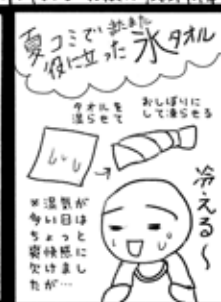 夏コミでまた
役に立った氷タオル
タオルを
湿らせて
おしぼりに
して凍らせる
冷える〜
※湿気が
多い日は
ちょっと
爽快感に
欠けまし
たが…